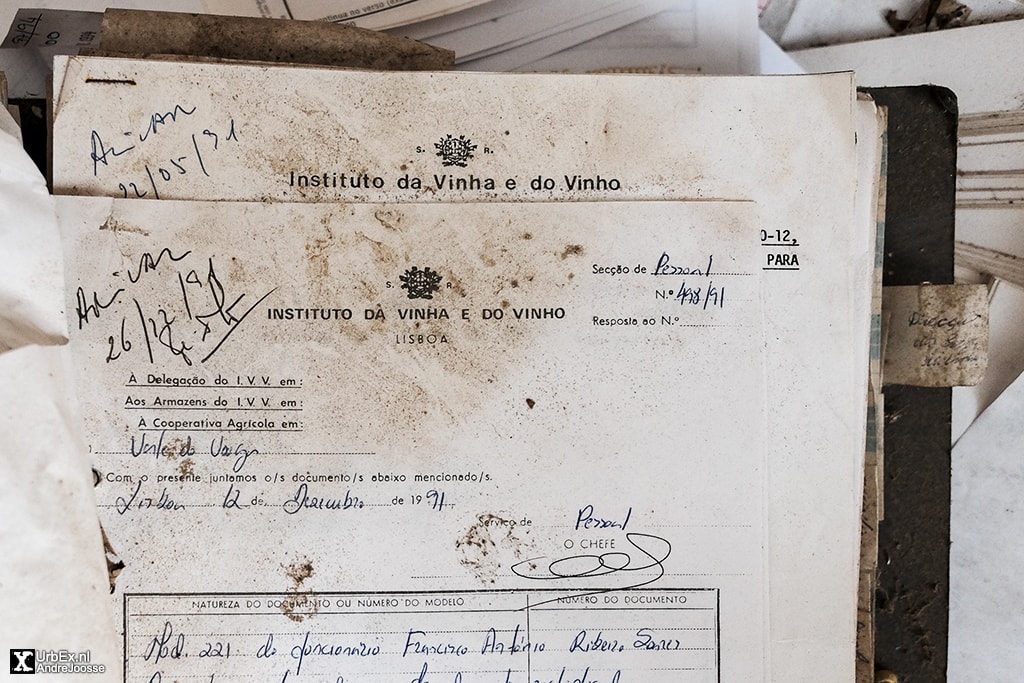 continua no verso
Arquivar
22/05/91
S. R.
Instituto da Vinha e do Vinho
O-12,
PARA
Arquivar
26/12/91
S. R.
INSTITUTO DA VINHA E DO VINHO
LISBOA
Secção de Pessoal
N.º 498/91
Resposta ao N.º
À Delegação do I. V. V. em:
Aos Armazens do I. V. V. em:
À Cooperativa Agrícola em:
Vale do
Com o presente juntamos o/s documento/s abaixo mencionado/s.
Lisboa 12 de Dezembro de 1991
Serviço de Pessoal
O CHEFE
NATUREZA DO DOCUMENTO OU NÚMERO DO MODELO
NÚMERO DO DOCUMENTO
Mod. 221 do funcionário Francisco António Ribeiro
UrbEx.nl
AndreJoosse